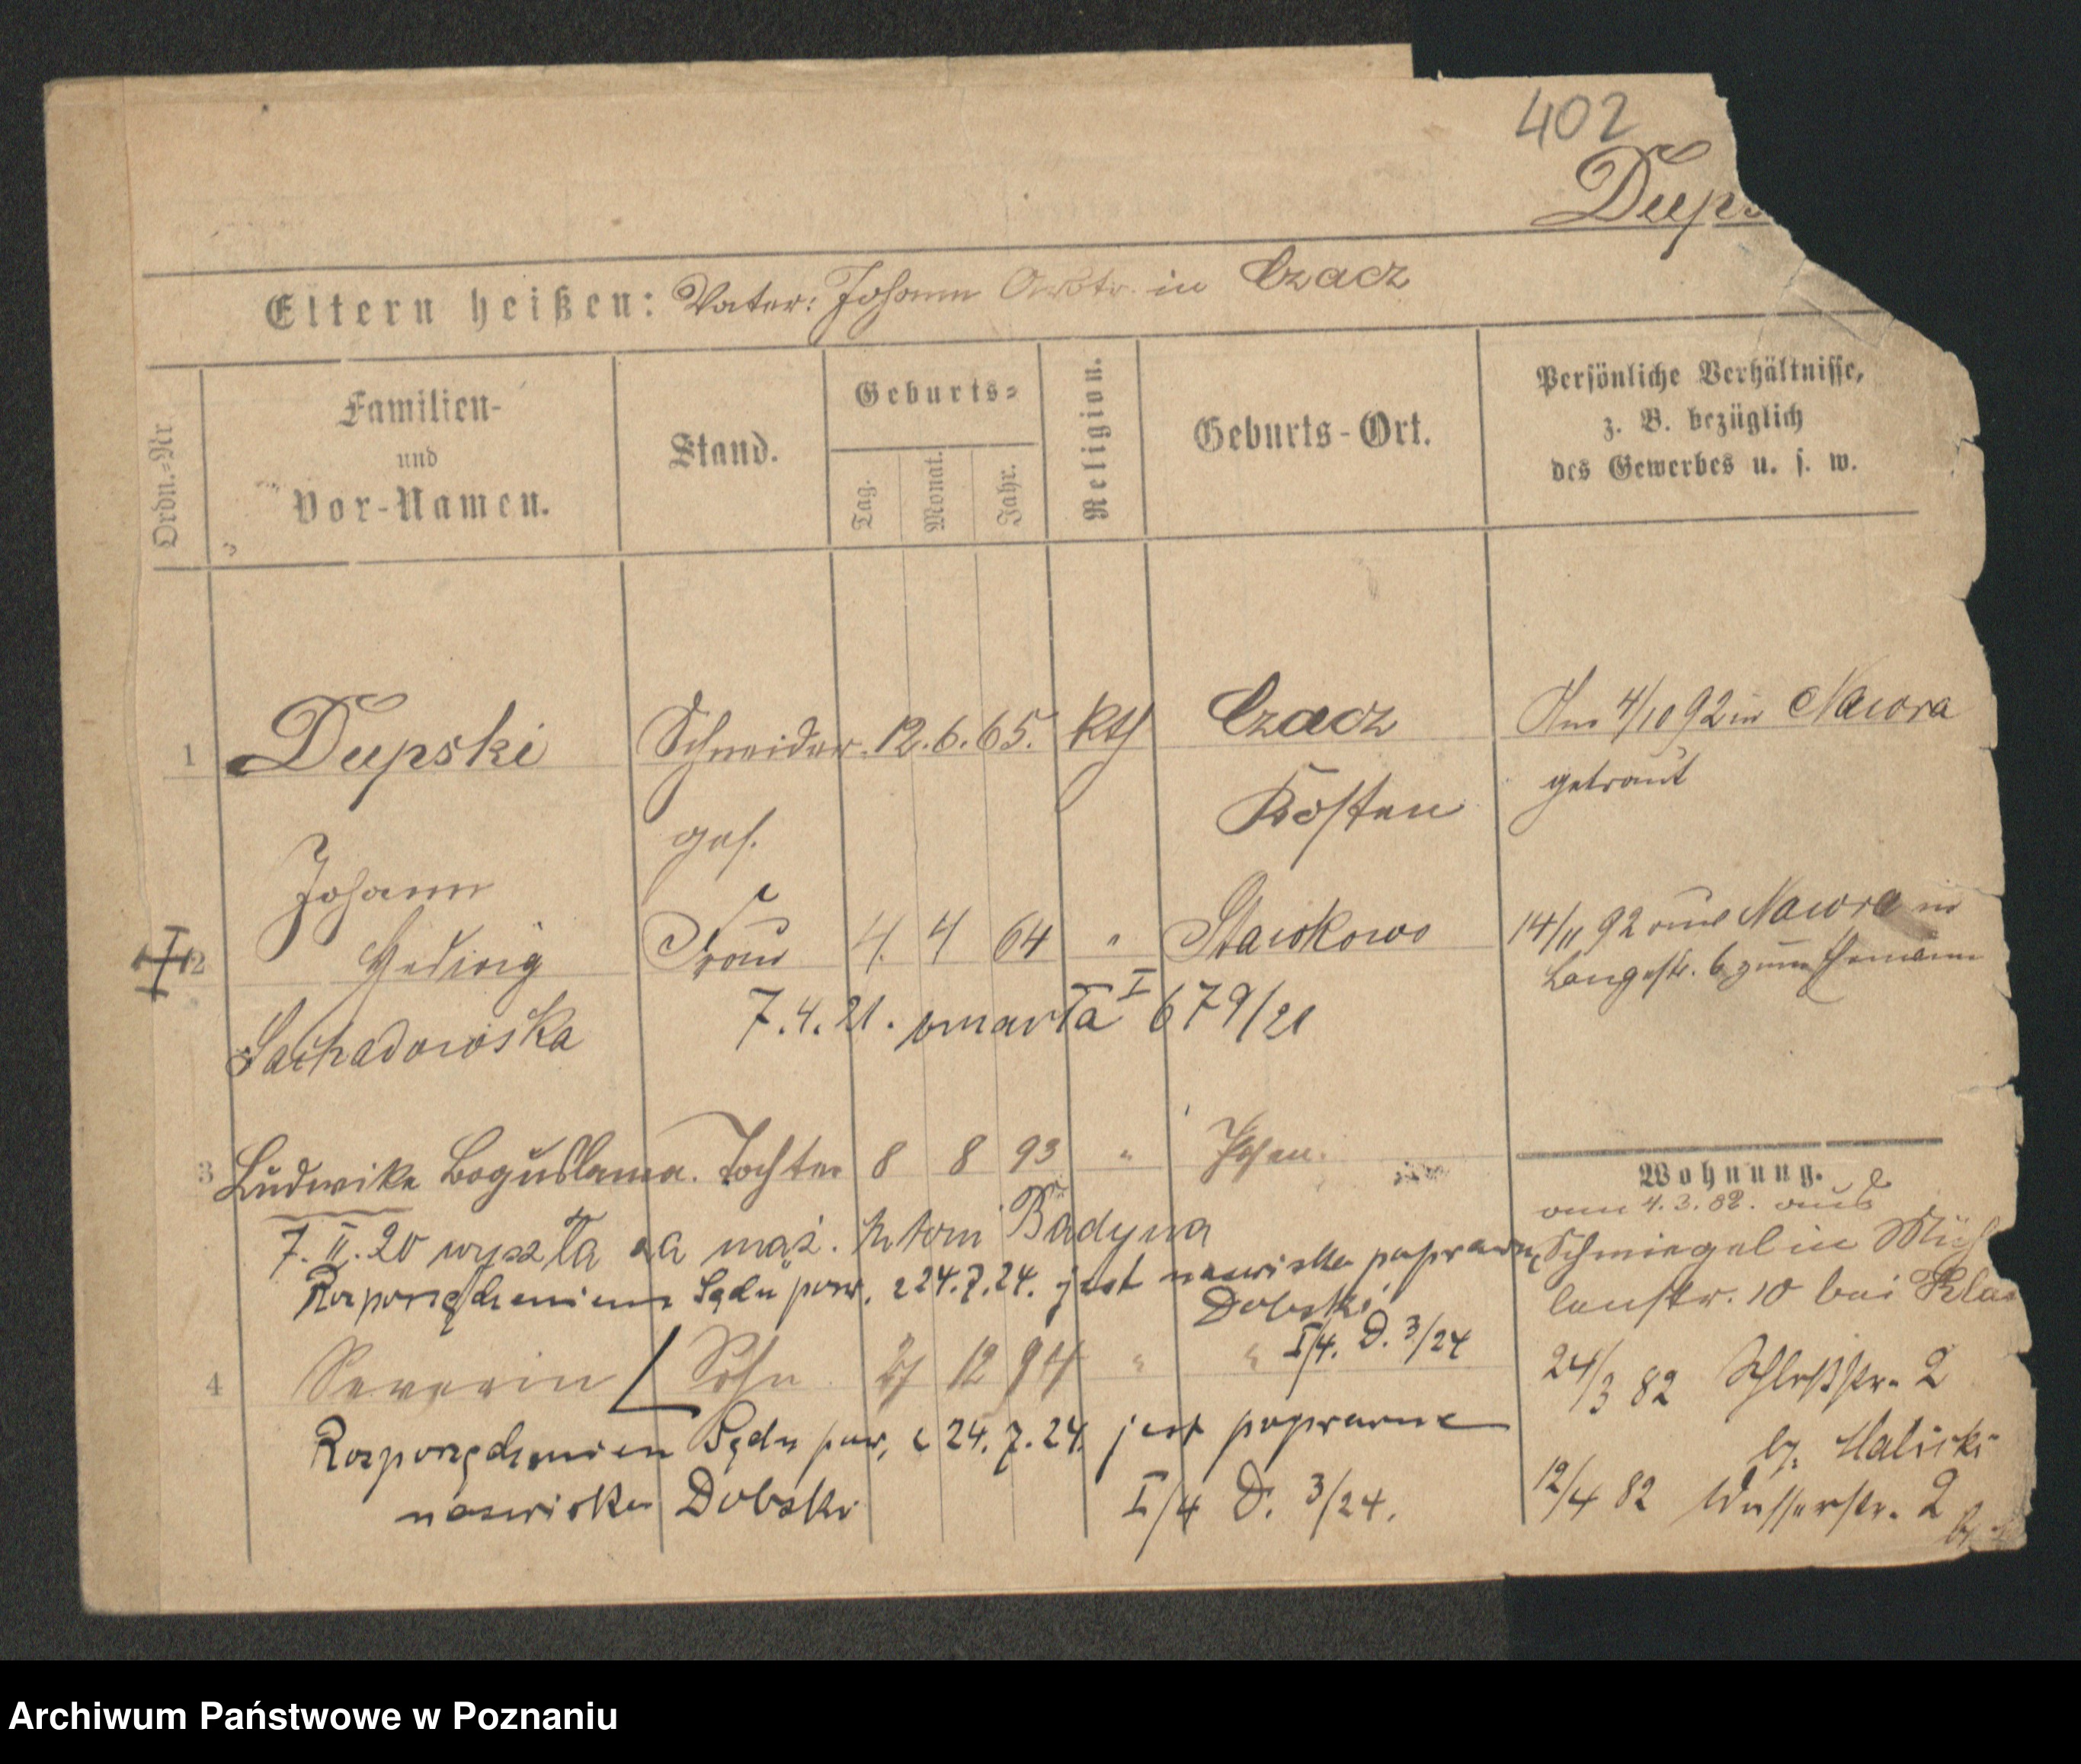 402
Dups
Eltern heißen: Vater: Johann in Czacz
Ordn.-Nr.
Familien-
und
Vor-Namen.
Stand.
Geburts-
Tag.
Monat.
Jahr.
Religion.
Geburts-Ort.
Persönliche Verhältnisse,
z. B. bezüglich
des Gewerbes u. s. w.
1 Dupski Schneider 12. 6. 65. kth Czacz
Kosten
Am 4/10 92 in Nawra
getraut
Johann
ges.
2 Hedwig Frau 4. 4 64 " Stawkowo
14/11 92 aus Nawra in
Langestr. 6 zum Ehemann
7.4.21. umarła I 679/21
3 Ludwika Boguslawa. Tochter 8 8 93 " Posen.
7. II. 20 wyszła za mąż. Badyna
Rozporządzeniem Sądu pow. z 24.7.24. jest nazwisko poprawne
Dobski
I/4. D. 3/24
4 Severin Sohn 27 12 94 " "
Rozporządzeniem Sądu pow. z 24.7.24. jest poprawne
nazwisko Dobski I/4 D. 3/24.
Wohnung.
4. 3. 82. aus
Schmiegel in Müh
lenstr. 10 bei
24/3 82 Schloßstr. 2
b. Malicki
12/4 82 Wasserstr. 2
Archiwum Państwowe w Poznaniu